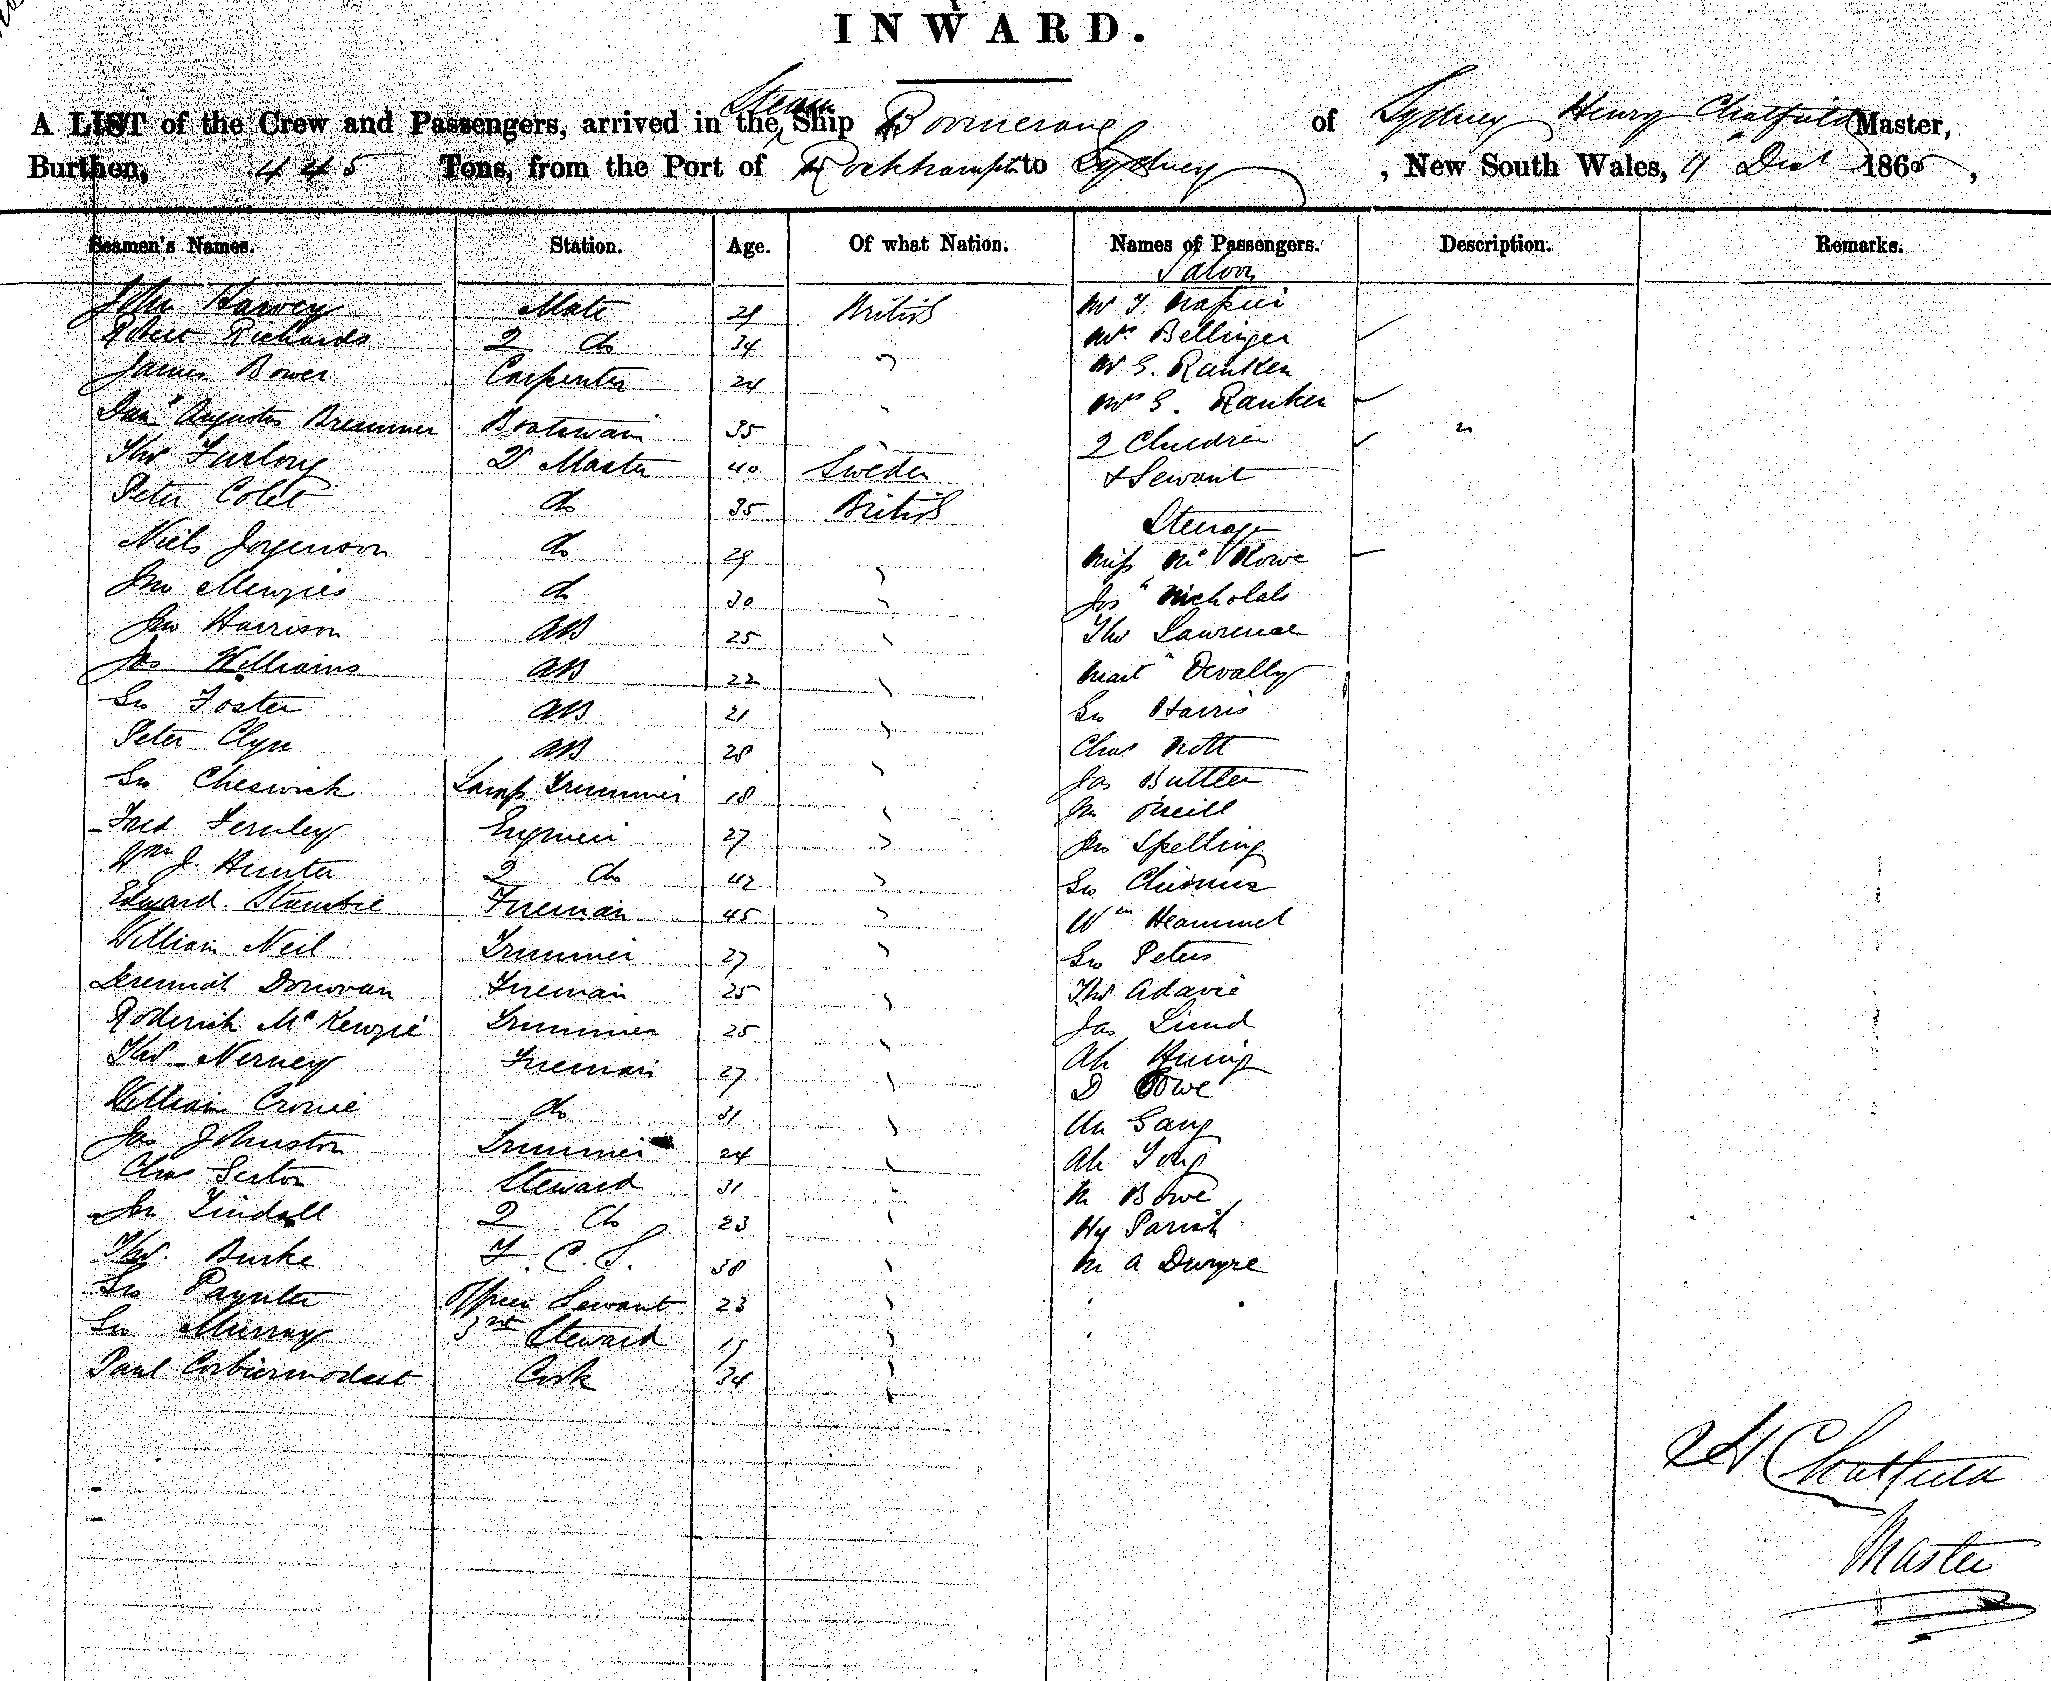 INWARD.
A LIST of the Crew and Passengers, arrived in the Steam Ship Boomerang of Sydney Henry Chatfield Master,
Burthen, 445 Tons, from the Port of Rockhampton to Sydney, New South Wales, 9 Decr 1865,
Seamen's Names. Station. Age. Of what Nation. Names of Passengers. Description. Remarks.
Saloon
John Harvey Mate 29 British Mr T. Napier
Robert Richards 2 do 34 Mrs Bellinger
James Bower Carpenter 24 Mr G. Ranken
Augustus Bremmer Boatswain 35 Mrs G. Ranken
Thos Furlong Qr Master 40 Sweden 2 Children
Peter do 35 British & Servant
Steerage
Niels Jorgenson do 29 Miss Mc Rowe
Jno Menzies do 30 Jos Nicholals
Jno Harrison AB 25 Thos Lawrence
Jas Williams AB 22 Mart Devally
Geo Foster AB 21 Geo Harris
Peter Clyn AB 28 Chas Nott
Geo Cheswick Lamp Trimmer 18 Jas Buttler
Fred Fernley Engineer 27 M Oneill
Wm J. Hunter 2 do 42 Jno Spelling
Edward Fireman 45 Geo
William Neil Trimmer 27 Wm Hammel
Jeremiah Donovan Fireman 25 Geo Peters
Roderick McKenzie Trimmer 25 Thos Adavie
Thos Nerney Fireman 27 Jas Lund
William Cronie do 31 Ah Hung
Jas Johnston Trimmer 24 D Rowe
Chas Sexton Steward 31 Un Gang
Jno Tindall 2 do 23 Ah Tong
Thos. Burke F. C. S. 38 M Bowe
Geo Paynter Officer Servant 23 Hy Parish
Geo Murray 3rd Steward 15 M A Dwyre
Paul Cook 34
H Chatfield
Master